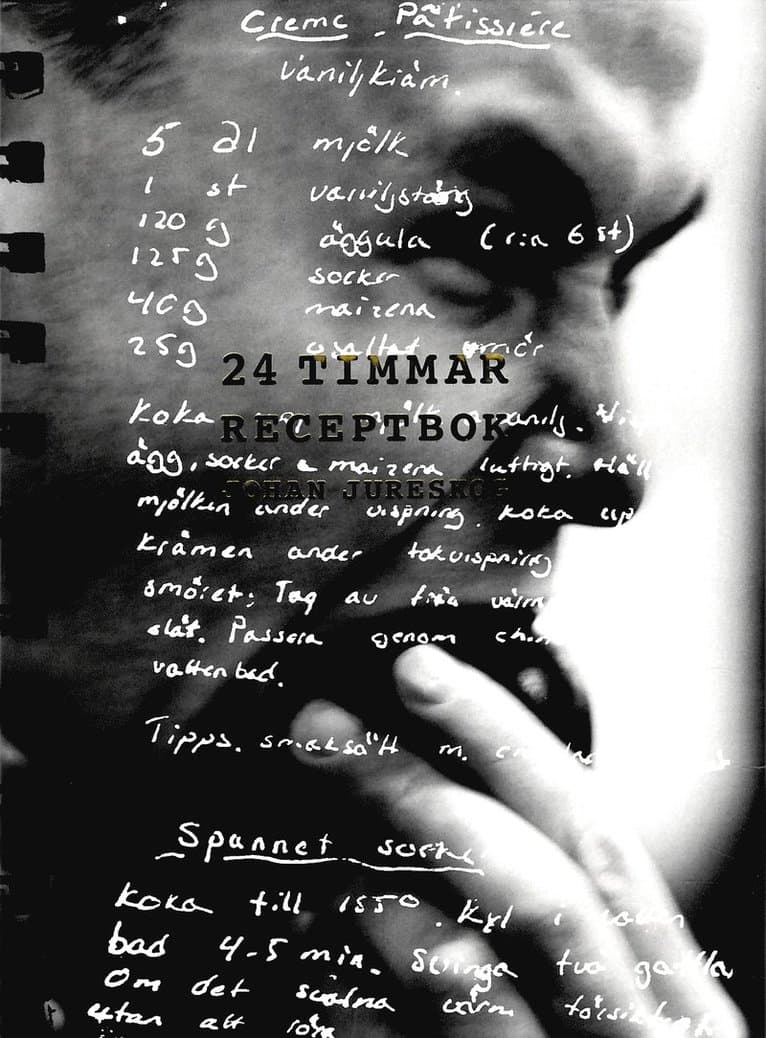 Creme Pâtissière
Vaniljkräm.
5 dl mjölk
1 st vaniljstång
120 g äggula (c:a 6 st)
125 g socker
40 g maizena
25 g osaltat smör
24 TIMMAR
Koka mjölk vanilj.
RECEPTBOK
ägg, socker & maizena luftigt. Häll
JOHAN JURESKOG
mjölken under vispning. Koka upp
krämen under tokvispning
smöret; Tag av från värm
slät. Passera genom
vattenbad.
Tipps. smaksätt m.
Spannet socker
Koka till 155°. Kyl i
bad 4-5 min. Svinga två gafflar
Om det svalna värm försiktigt
utan att röra